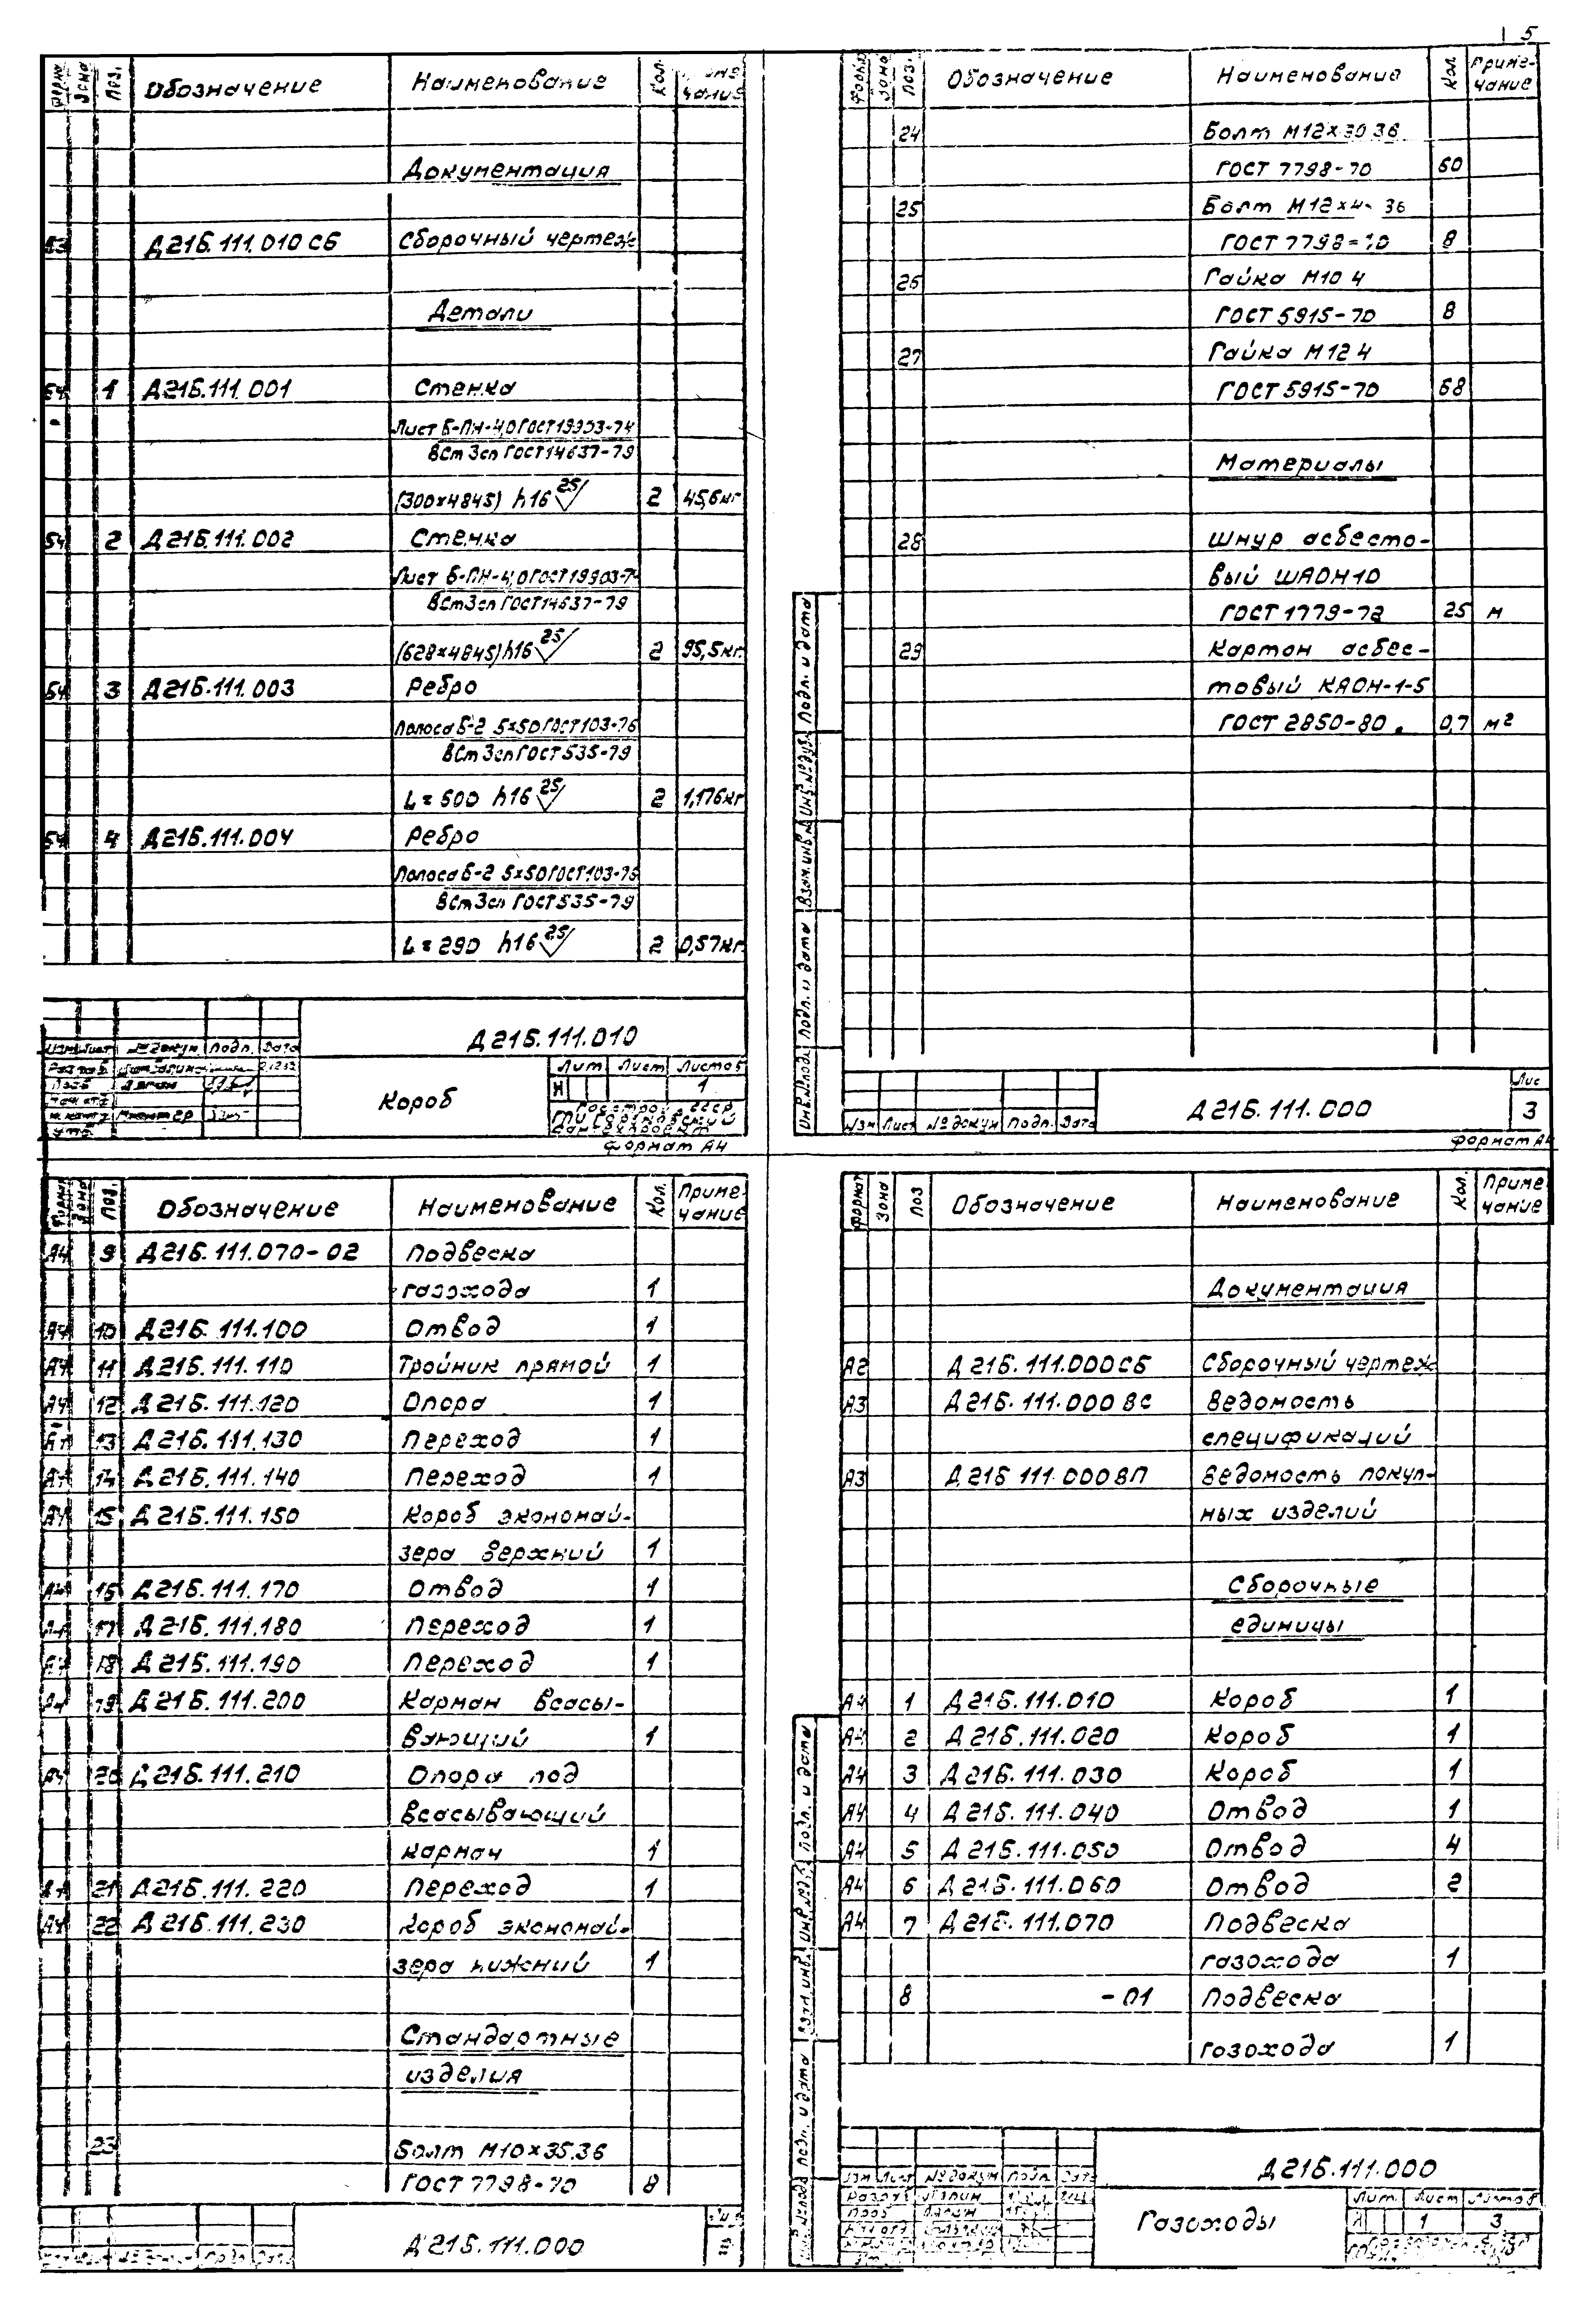 5
Зона Поз. Обозначение Наименование Кол. чания
Документация
А3 Д21Б.111.010 СБ Сборочный чертеж
Детали
БЧ 1 Д21Б.111.001 Стенка
Лист Б-ПН-4,0 ГОСТ 19903-74
ВСт 3сп ГОСТ 14637-79
(300×4845) h16 25 2 45,6кг
БЧ 2 Д21Б.111.002 Стенка
Лист Б-ПН-4,0 ГОСТ 19903-74
ВСт3сп ГОСТ 14637-79
(628×4845) h16 25 2 95,5кг
БЧ 3 Д21Б.111.003 Ребро
Полоса Б-2 5×50 ГОСТ 103-76
ВСт 3сп ГОСТ 535-79
L=500 h16 25 2 1,176кг
БЧ 4 Д21Б.111.004 Ребро
Полоса Б-2 5×50 ГОСТ 103-76
ВСт 3сп ГОСТ 535-79
L=290 h16 25 2 0,57кг
Д21Б.111.010
Изм Лист № докум Подп. Дата
Короб
Лит Лист Листов
И 1
Госстрой СССР
Формат А4
Формат Зона Поз. Обозначение Наименование Кол. Приме-
чание
24 Болт М12×30 36
ГОСТ 7798-70 60
25 Болт М12×4 36
ГОСТ 7798-70 8
26 Гайка М10 4
ГОСТ 5915-70 8
27 Гайка М12 4
ГОСТ 5915-70 68
Материалы
28 Шнур асбесто-
вый ШАОН 10
ГОСТ 1779-72 25 м
29 Картон асбес-
товый КАОН-1-5
ГОСТ 2850-80. 0,7 м²
Инв.№подл. Подп. и дата Взам.инв.№ Инв.№дубл. Подп. и дата
Изм Лист № докум Подп. Дата
Д21Б.111.000
Лис
3
Формат А4
Формат Зона Поз. Обозначение Наименование Кол. Приме-
чание
А4 9 Д21Б.111.070-02 Подвеска
газохода 1
А4 10 Д21Б.111.100 Отвод 1
А4 11 Д21Б.111.110 Тройник прямой 1
А4 12 Д21Б.111.120 Опора 1
А4 13 Д21Б.111.130 Переход 1
А4 14 Д21Б.111.140 Переход 1
А4 15 Д21Б.111.150 Короб экономай-
зера верхний 1
А4 16 Д21Б.111.170 Отвод 1
А4 17 Д21Б.111.180 Переход 1
А4 18 Д21Б.111.190 Переход 1
А4 19 Д21Б.111.200 Карман всасы-
вающий 1
А4 20 Д21Б.111.210 Опора под
всасывающий
карман 1
А4 21 Д21Б.111.220 Переход 1
А4 22 Д21Б.111.230 Короб экономай-
зера нижний 1
Стандартные
изделия
23 Болт М10×35.36
ГОСТ 7798-70 8
Д21Б.111.000
Формат Зона Поз Обозначение Наименование Кол. Приме-
чание
Документация
А2 Д21Б.111.000СБ Сборочный чертеж
А3 Д21Б.111.000 ВС Ведомость
спецификаций
А3 Д21Б 111.000ВП Ведомость покуп-
ных изделий
Сборочные
единицы
А4 1 Д21Б.111.010 Короб 1
А4 2 Д21Б.111.020 Короб 1
А4 3 Д21Б.111.030 Короб 1
А4 4 Д21Б.111.040 Отвод 1
А4 5 Д21Б.111.050 Отвод 4
А4 6 Д21Б.111.060 Отвод 2
А4 7 Д21Б.111.070 Подвеска
газохода 1
8 -01 Подвеска
газохода 1
Инв.№подл. Подп. и дата Взам.инв.№ Инв.№дубл. Подп. и дата
Д21Б.111.000
Изм Лист № докум Подп. Дата
Газоходы
Лит. Лист Листов
И 1 3